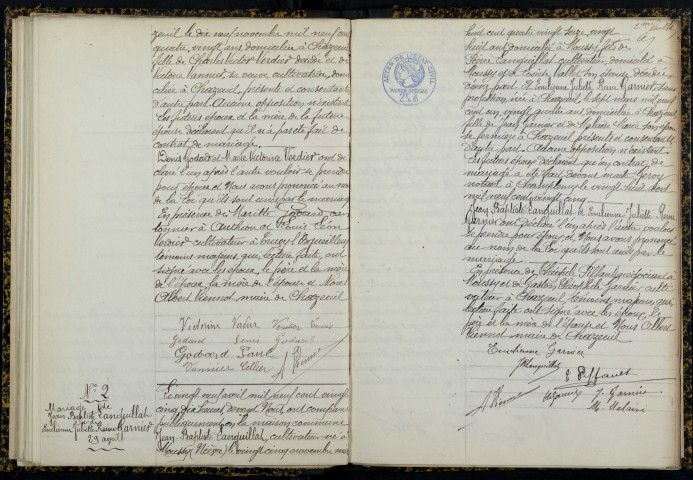 zeuil le dix neuf novembre mil neuf cent
quatre, vingt ans domiciliée à Chazeuil
fille de Charles Victor Verdier décédé et de
Victoire Vannier, sa veuve cultivatrice, domi
ciliée à Chazeuil, présente et consentante
d'autre part. Aucune opposition n'existant
Les futurs époux et la mère de la future
épouse déclarent qu'il n'a pas été fait de
contrat de mariage.
Denis Godard et Marie Victorine Verdier ont dé
claré l'un après l'autre vouloir se prendre
pour époux et Nous avons prononcé au nom
de la Loi qu'ils sont unis par le mariage
En présence de Godard can
tonnier à Authiou et Louis Léon
Verdier cultivateur à
témoins majeurs, qui, lecture faite, ont
signé avec les époux, le père et la mère
de l'époux, la mère de l'épouse et Nous
Albert Viennot maire de Chazeuil
Verdier
Godard Godard
Godard Paul
A Viennot
N° 2
Mariage de
Jean Baptiste Lanquillat
et de
Emilienne Juliette Reine Garnier
29 avril
Le vingt neuf avril mil neuf cent vingt
cinq, dix heures devant Nous ont comparu
publiquement en la maison commune
Jean Baptiste Lanquillat, cultivateur né à
Moussy (Nièvre) le vingt cinq novembre mil
ACTES DE L'ÉTAT CIVIL
PAPIER SPÉCIAL
huit cent quatre vingt seize vingt
huit ans domicilié à Moussy fils de
Pierre Lanquillat cultivateur, domicilié à
Moussy et de Louise Vallet son épouse décédée
d'une part. Et Emilienne Juliette Reine Garnier, sans
profession née à Chazeuil le sept mars mil neuf
cent un, vingt quatre ans domiciliée à Chazeuil
fille de Jean Garnier et de son épou
se fermiers à Chazeuil présents et consentants
d'autre part. Aucune opposition n'existant
Les futurs époux déclarent qu'un contrat de
mariage a été fait devant maître
notaire à Champlemy le vingt huit avril
mil neuf cent vingt cinq.
Jean Baptiste Lanquillat et Emilienne Juliette Reine
Garnier ont déclaré l'un après l'autre vouloir
se prendre pour époux et Nous avons prononcé
au nom de la Loi qu'ils sont unis par le
mariage.
En présence de Piffault négociant à
Moussy et de Gaston Garnier culti
vateur à Chazeuil témoins majeurs, qui
lecture faite ont signé avec les époux, le
père et la mère de l'épouse et Nous Albert
Viennot maire de Chazeuil
Emilienne Garnier
Lanquillat
Piffault
A Viennot
Garnier
J. Garnier